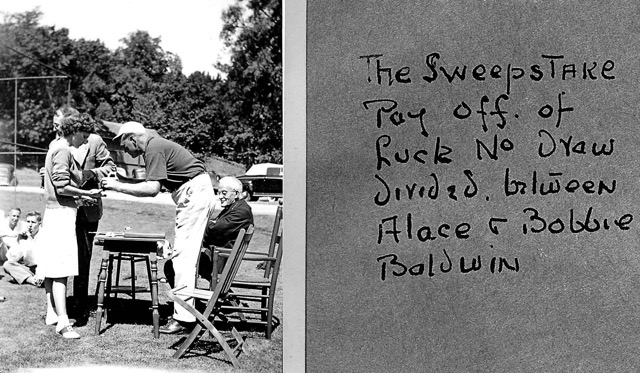 The SweepsTAKE
Pay Off. of
Luck No Draw
divided. between
Alace & Bobbie
Baldwin